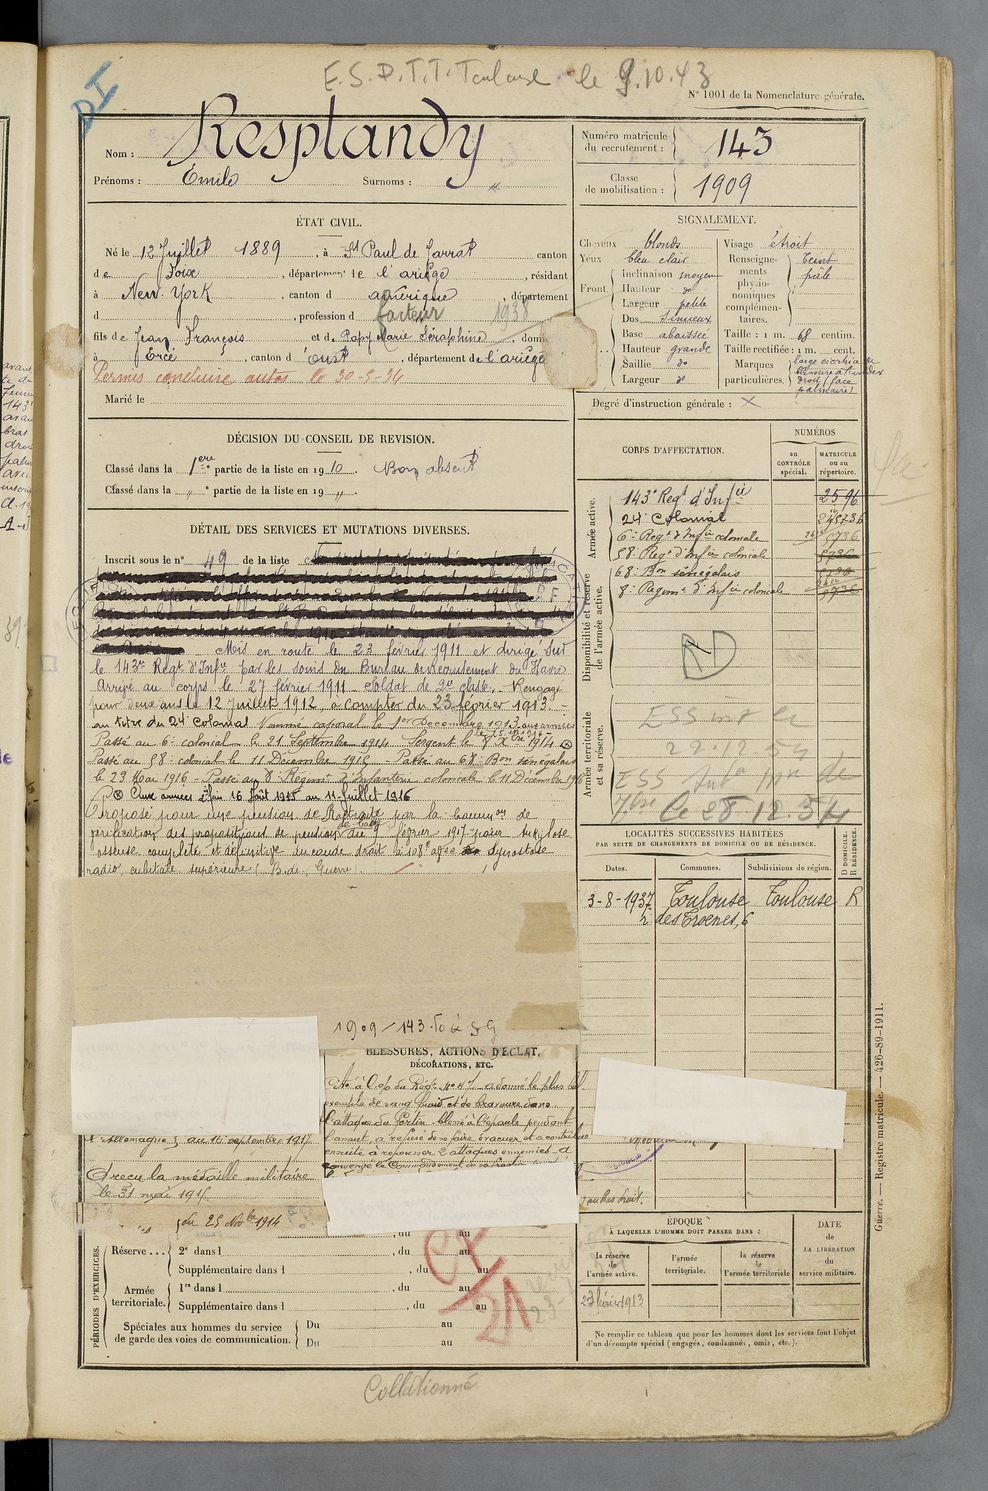 E.S.P.T.T. Toulouse le 9.10.43
N° 1001 de la Nomenclature générale.
DI
Nom : Resplandy
Prénoms : Émile Surnoms : "
Numéro matricule du recrutement : 143
Classe de mobilisation : 1909
ÉTAT CIVIL.
Né le 12 Juillet 1889, à St Paul de Jarrat, canton
de Foix, département de l'ariège, résidant
à New-York, canton d amérique, département
d , profession d facteur 1938
fils de Jean François et de Papy Marie Séraphine, domi
à Ercé, canton d'oust, département de l'ariège
Permis conduire autos le 30-5-34
Marié le
SIGNALEMENT.
Cheveux blonds
Yeux bleu clair
Front. Inclinaison moyen
Hauteur do
Largeur petite
Nez. Dos Sinueux
Base abaissée
Hauteur grande
Saillie do
Largeur do
Visage étroit
Renseignements physionomiques complémentaires. Teint pâle
Taille : 1 m. 68 centim.
Taille rectifiée : 1 m. cent.
Marques particulières.
Degré d'instruction générale : X
DÉCISION DU CONSEIL DE REVISION.
Classé dans la 1ère partie de la liste en 1910. Bon absent
Classé dans la " partie de la liste en 19 "
DÉTAIL DES SERVICES ET MUTATIONS DIVERSES.
Inscrit sous le n° 49 de la liste
Mis en route le 23 février 1911 et dirigé sur
le 143me Régt d'Infie par les soins du Bureau de recrutement du Havre
Arrivé au corps le 27 février 1911. Soldat de 2e classe. Rengagé
pour deux ans le 12 Juillet 1912, à compter du 23 février 1913.
au titre du 24e Colonial. Nommé caporal le 1er Décembre 1913
Passé au 6e colonial le 21 Septembre 1914 Sergent le 1914
Passé au 58e colonial le 11 Décembre 1915 - Passé au 68e Bon sénégalais
le 23 Mai 1916 - Passé au 8e Régiment d'Infanterie coloniale le 11 Décembre 1916
Aux armées du 16 Août 1915 au 11 Juillet 1916
Proposé pour une pension de Retraite par la Commion de
vérification des propositions de pension de février 1917 pour ankylose
osseuse complète et définitive du coude droit à 108° avec synostose
radio cubitale supérieure. B. de Guerre.
CORPS D'AFFECTATION.
NUMÉROS
au CONTRÔLE spécial.
MATRICULE ou au répertoire.
Armée active.
143e Regt d'Infie 2596
24e Colonial
6e Régt d'Infie coloniale
58e Régt d'Infie coloniale
68e Bon sénégalais
8e Régimt d'Infie coloniale
Disponibilité et réserve de l'armée active.
Armée territoriale et sa réserve.
ESS
22.12.54
ESS
Le 28.12.54
LOCALITÉS SUCCESSIVES HABITÉES
PAR SUITE DE CHANGEMENTS DE DOMICILE OU DE RÉSIDENCE.
Dates. Communes. Subdivisions de région. D DOMICILE. R RÉSIDENCE.
3-8-1937 Toulouse Toulouse R
1909/143
BLESSURES, ACTIONS D'ÉCLAT, DÉCORATIONS, ETC.
Cité à l'o/o du Régt No 47 a donné le plus bel
exemple de sang froid et de bravoure dans
l'attaque du Fortin blessé à l'épaule pendant
l'assaut, a refusé de se faire évacuer et a contribué
ensuite à repousser 2 attaques ennemies - a
conservé le Commandement de sa fraction
l'Allemagne au 14 septembre 1917
A reçu la médaille militaire
le 31 mai 191
du 25 Novbre 1914
PÉRIODES D'EXERCICES.
Réserve ... 2e dans l , du au
Supplémentaire dans l , du au
Armée territoriale. 1re dans l , du au
Supplémentaire dans l , du au
Spéciales aux hommes du service de garde des voies de communication. Du au
Du au
ÉPOQUE
À LAQUELLE L'HOMME DOIT PASSER DANS :
la réserve de l'armée active.
l'armée territoriale.
la réserve de l'armée territoriale
DATE DE LA LIBÉRATION du service militaire.
23 février 1913
Ne remplir ce tableau que pour les hommes dont les services font l'objet
d'un décompte spécial (engagés, condamnés, omis, etc.).
Guerre. — Registre matricule. — 426-89-1911.
Collationné